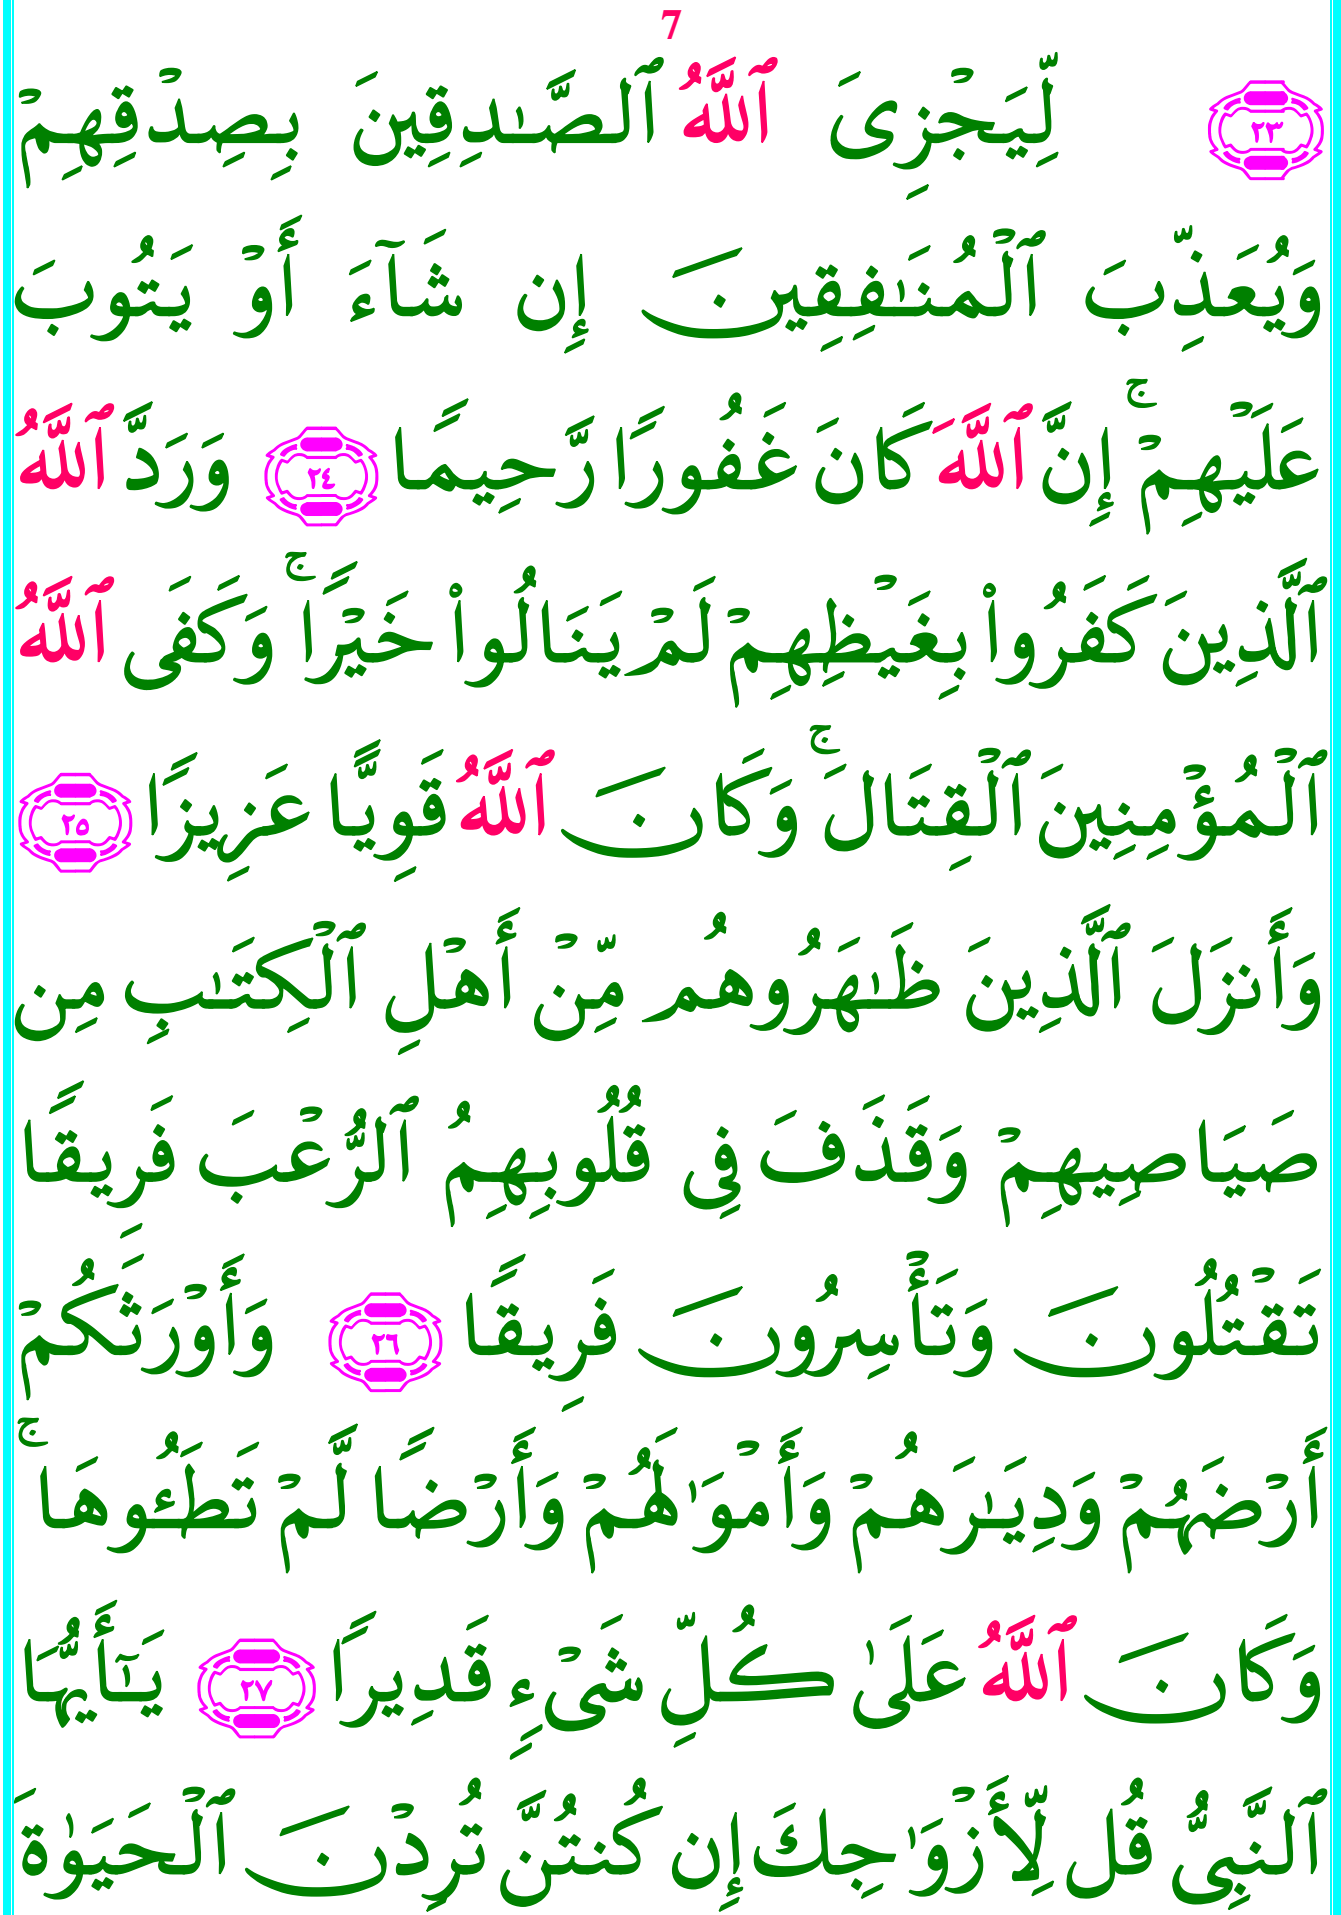 7
٢٣ لِّيَجْزِىَ ٱللَّهُ ٱلصَّـٰدِقِينَ بِصِدْقِهِمْ
وَيُعَذِّبَ ٱلْمُنَـٰفِقِينَ إِن شَآءَ أَوْ يَتُوبَ
عَلَيْهِمْ ۚ إِنَّ ٱللَّهَ كَانَ غَفُورًا رَّحِيمًا ٢٤ وَرَدَّ ٱللَّهُ
ٱلَّذِينَ كَفَرُوا۟ بِغَيْظِهِمْ لَمْ يَنَالُوا۟ خَيْرًا ۚ وَكَفَى ٱللَّهُ
ٱلْمُؤْمِنِينَ ٱلْقِتَالَ ۚ وَكَانَ ٱللَّهُ قَوِيًّا عَزِيزًا ٢٥
وَأَنزَلَ ٱلَّذِينَ ظَـٰهَرُوهُم مِّنْ أَهْلِ ٱلْكِتَـٰبِ مِن
صَيَاصِيهِمْ وَقَذَفَ فِى قُلُوبِهِمُ ٱلرُّعْبَ فَرِيقًا
تَقْتُلُونَ وَتَأْسِرُونَ فَرِيقًا ٢٦ وَأَوْرَثَكُمْ
أَرْضَهُمْ وَدِيَـٰرَهُمْ وَأَمْوَٰلَهُمْ وَأَرْضًا لَّمْ تَطَـُٔوهَا ۚ
وَكَانَ ٱللَّهُ عَلَىٰ كُلِّ شَىْءٍ قَدِيرًا ٢٧ يَـٰٓأَيُّهَا
ٱلنَّبِىُّ قُل لِّأَزْوَٰجِكَ إِن كُنتُنَّ تُرِدْنَ ٱلْحَيَوٰةَ